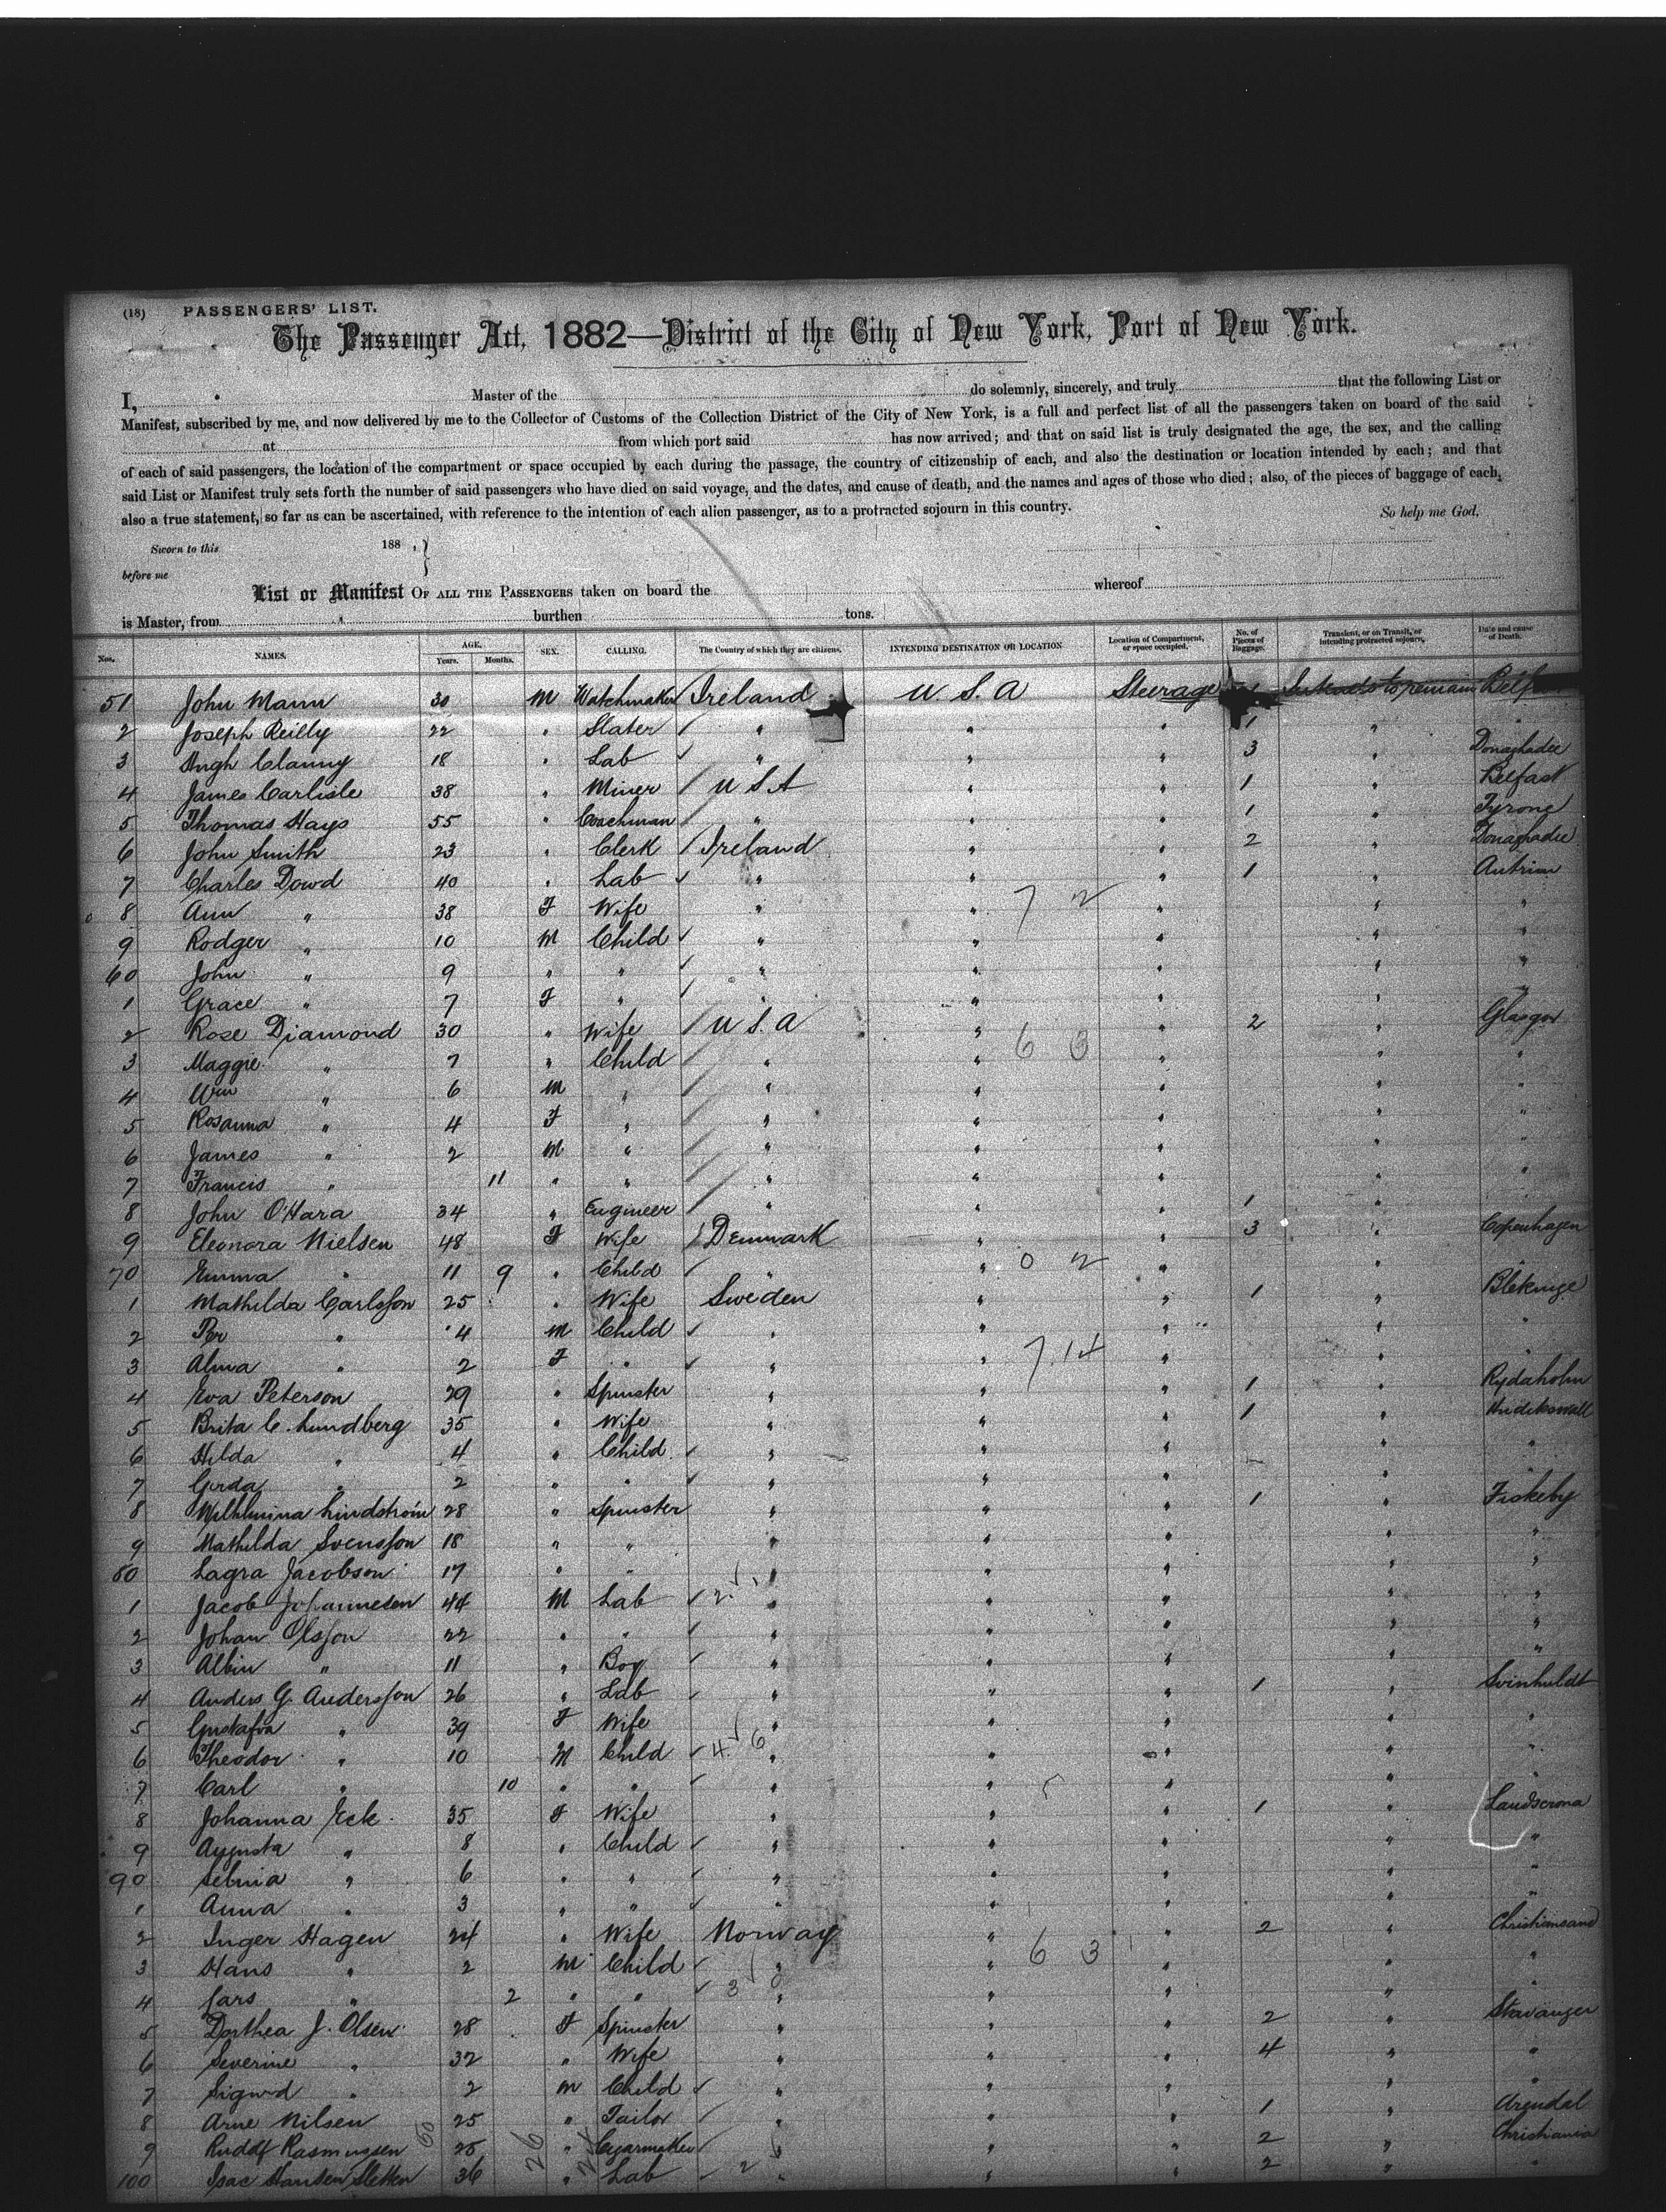 (18) PASSENGERS' LIST.
The Passenger Act, 1882—District of the City of New York, Port of New York.
I, Master of the do solemnly, sincerely, and truly that the following List or
Manifest, subscribed by me, and now delivered by me to the Collector of Customs of the Collection District of the City of New York, is a full and perfect list of all the passengers taken on board of the said
at from which port said has now arrived; and that on said list is truly designated the age, the sex, and the calling
of each of said passengers, the location of the compartment or space occupied by each during the passage, the country of citizenship of each, and also the destination or location intended by each; and that
said List or Manifest truly sets forth the number of said passengers who have died on said voyage, and the dates, and cause of death, and the names and ages of those who died; also, of the pieces of baggage of each,
also a true statement, so far as can be ascertained, with reference to the intention of each alien passenger, as to a protracted sojourn in this country. So help me God.
Sworn to this 188 ,
before me
List or Manifest OF ALL THE PASSENGERS taken on board the whereof
is Master, from burthen tons.
Nos. NAMES. AGE. Years. Months. SEX. CALLING. The Country of which they are citizens. INTENDING DESTINATION OR LOCATION Location of Compartment, or space occupied. No. of Pieces of Baggage. Transient, or on Transit, or intending protracted sojourn. Date and cause of Death.
51 John Mann 30 M Watchmaker Ireland U S. A Steerage Intends to remain Belfast
2 Joseph Reilly 22 " Slater " " " 1 " "
3 Hugh Clanny 18 " Lab " " " 3 " Donaghadee
4 James Carlisle 38 " Miner U S A " " 1 " Belfast
5 Thomas Hays 55 " Coachman " " " 1 " Tyrone
6 John Smith 23 " Clerk Ireland " " 2 " Donaghadee
7 Charles Dowd 40 " Lab " " " 1 " Antrim
8 Ann " 38 F Wife " " 7 2 " " "
9 Rodger " 10 M Child " " " " "
60 John " 9 " " " " " " "
1 Grace " 7 F " " " " " "
2 Rose Diamond 30 " Wife U S. A " " 2 " Glasgow
3 Maggie " 7 " Child " " 6 3 " " "
4 Wm " 6 M " " " " " "
5 Rosanna " 4 F " " " " " "
6 James " 2 M " " " " " "
7 Francis " 11 " " " " " " "
8 John O'Hara 34 " Engineer " " " 1 "
9 Eleonora Nielsen 48 F Wife Denmark " " 3 " Copenhagen
70 Emma " 11 9 " Child " " 0 2 " " "
1 Mathilda Carlsson 25 " Wife Sweden " " 1 " Blekinge
2 Per " 4 M Child " " " " "
3 Alma " 2 F " " " 7.14 " "
4 Eva Peterson 29 " Spinster " " " 1 " Rydaholm
5 Brita C. Lundberg 35 " Wife " " " 1 " Hudikswall
6 Hilda " 4 " Child " " " " "
7 Gerda " 2 " " " " " " "
8 Wilhelmina Lindström 28 " Spinster " " " 1 " Fiskeby
9 Mathilda Svensson 18 " " " " " " "
80 Lagra Jacobson 17 " " " " " " "
1 Jacob Johannesen 44 M Lab 2 " " " " "
2 Johan Olsson 22 " " " " " " "
3 Albin " 11 " Boy " " " " "
4 Anders G. Andersson 26 " Lab " " " 1 " Svinhuldt
5 Gustafva " 39 F Wife " " " " "
6 Theodor " 10 M Child 4. 6 " " " " "
7 Carl " 10 " " " " " " "
8 Johanna Eck 35 F Wife " " " 1 " Landscrona
9 Augusta " 8 " Child " " " " "
90 Selma " 6 " " " " " " "
1 Anna " 3 " " " " " " "
2 Inger Hagen 24 " Wife Norway " " 2 " Christiansand
3 Hans " 2 M Child " " 6 3 " " "
4 Lars " 2 " " 3 " " " " "
5 Dorthea J. Olsen 28 F Spinster " " " 2 " Stavanger
6 Severine " 32 " Wife " " " 4 " "
7 Sigurd " 2 M Child " " " " "
8 Arne Nilsen 25 " Tailor " " " 1 " Arendal
9 Rudolf Rasmussen 25 " Cigarmaker " " " 2 " Christiania
100 Isac Hansen Sletten 36 " Lab 2 " " " 2 " "
60 26 24